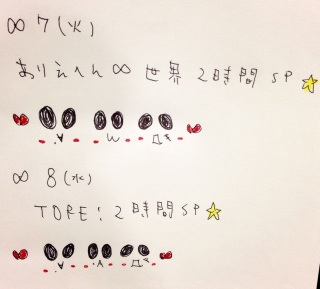 ∞ 7(火)
ありえへん∞世界 2時間 SP
∞ 8(水)
TORE! 2時間SP